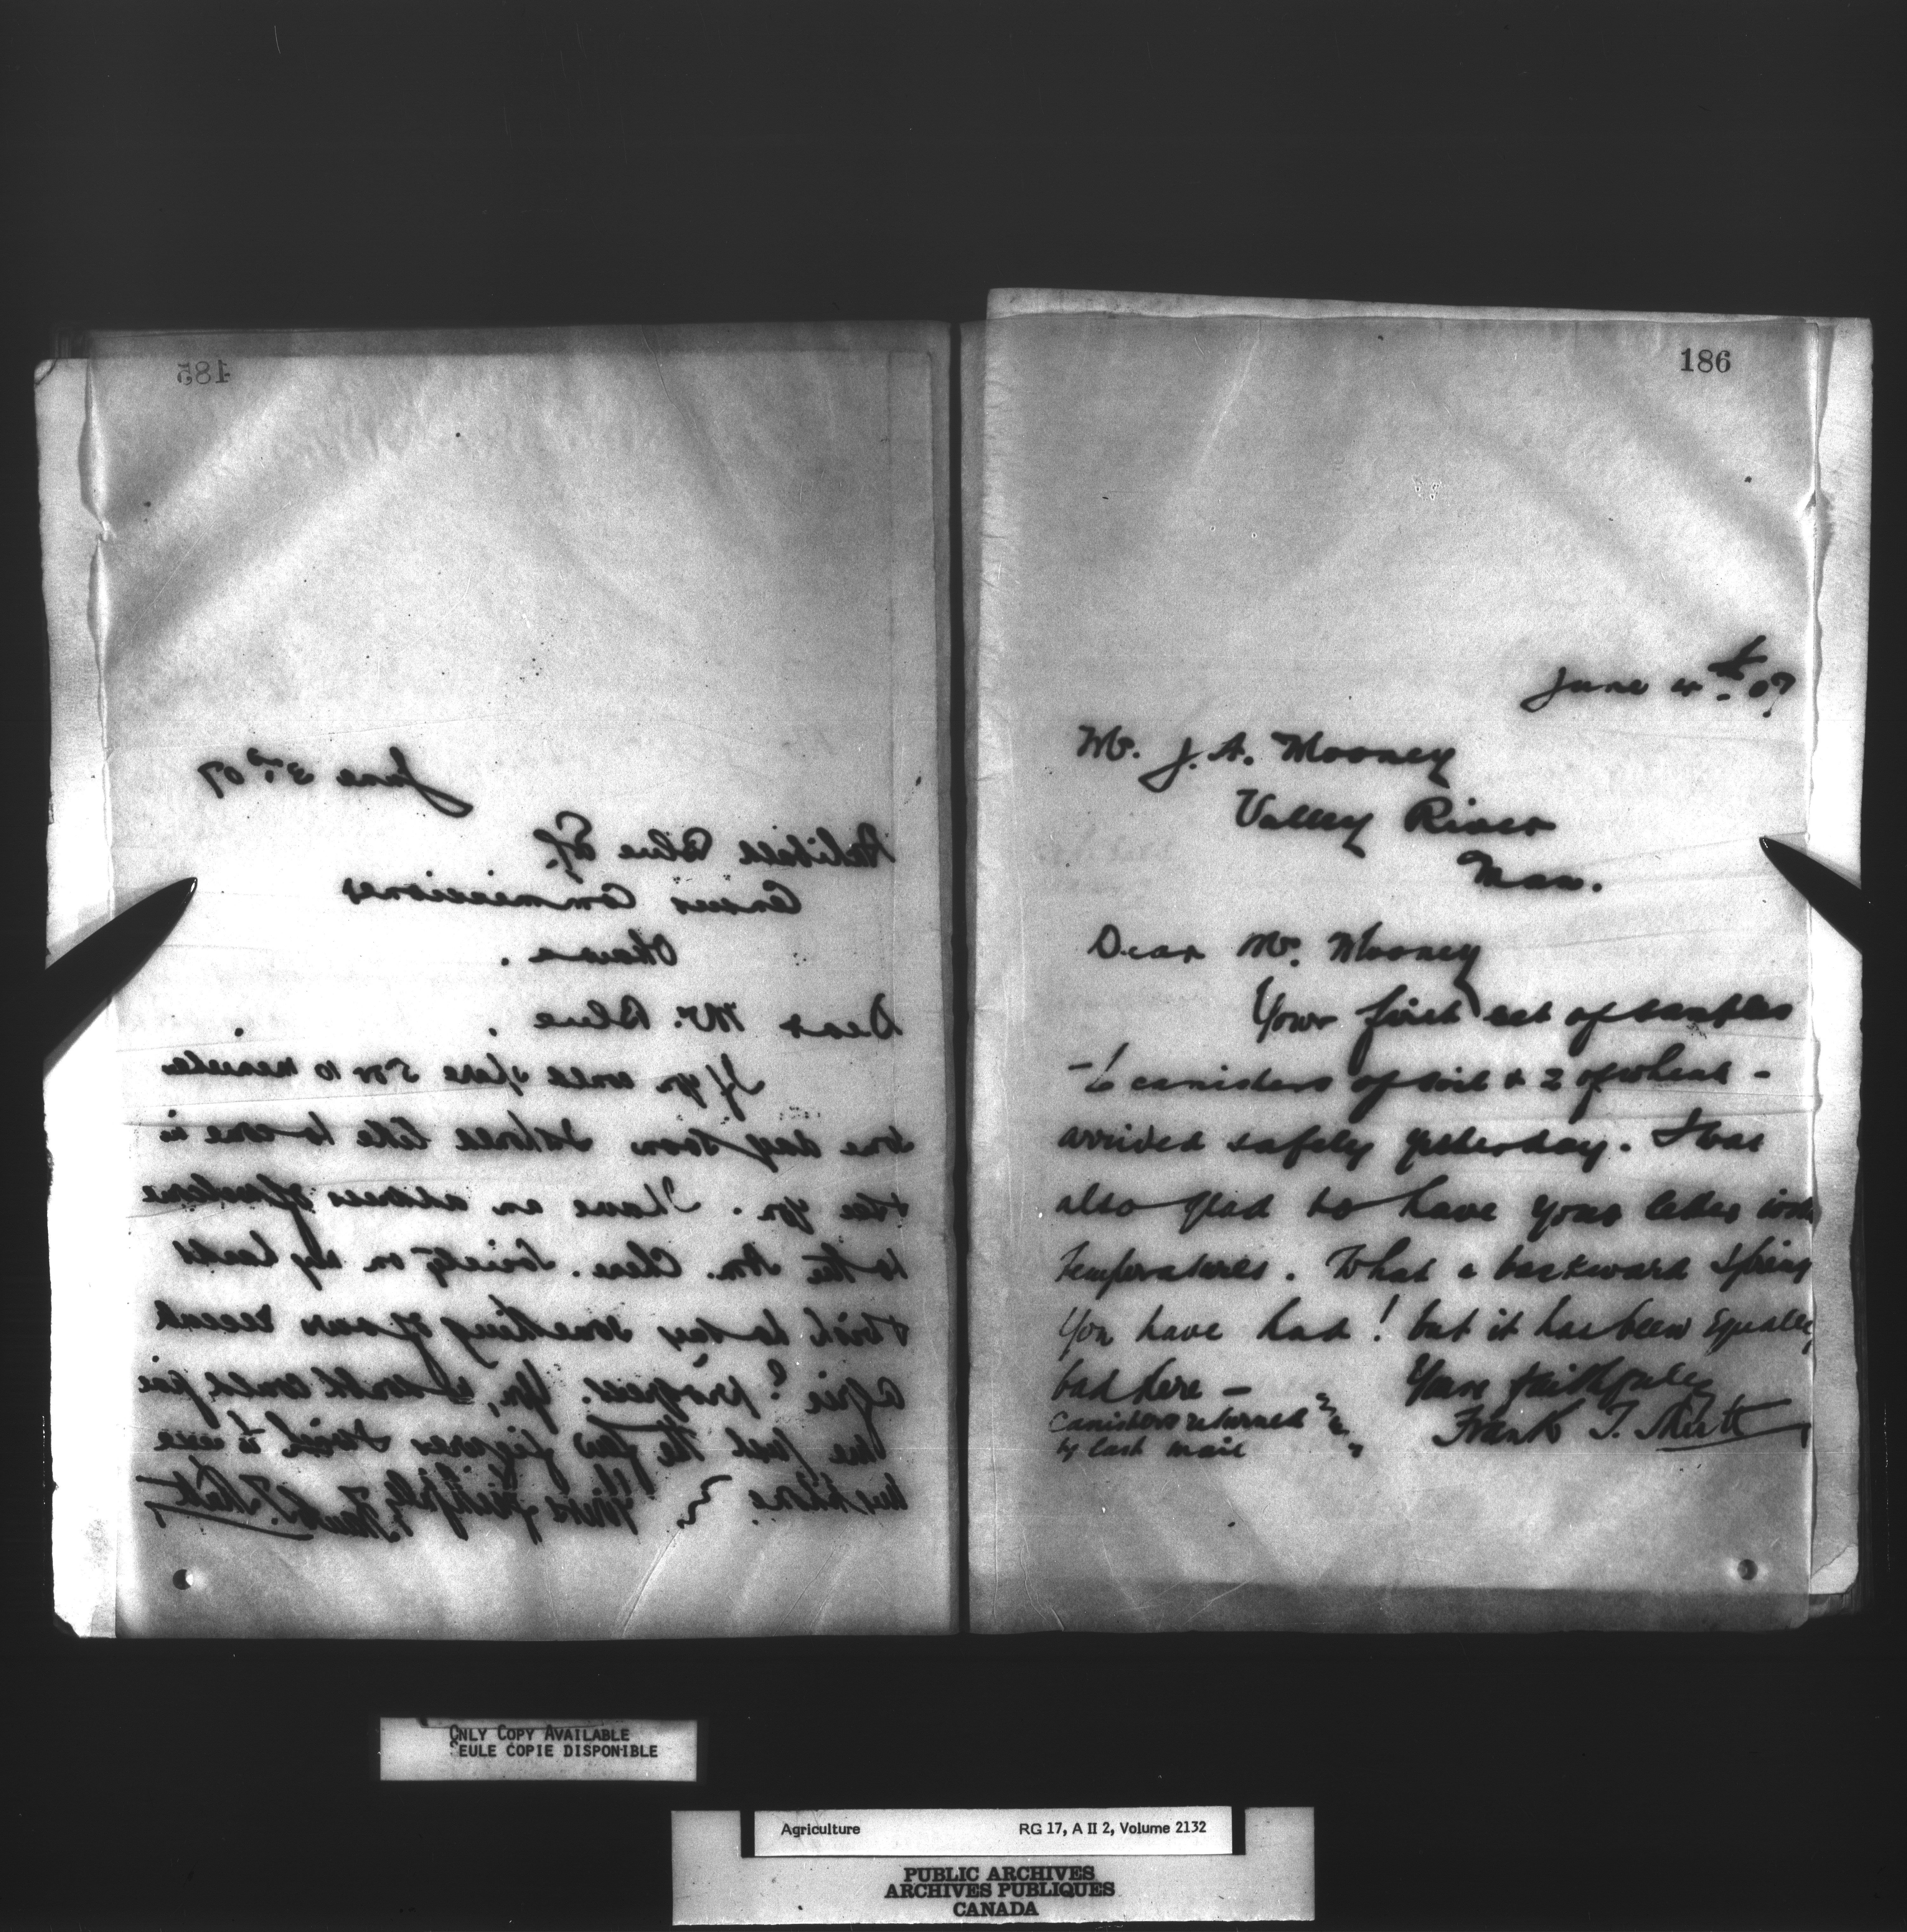 185
June 3rd 07
Archibald Blue Esq.
Census Commissioner
Ottawa.
Dear Mr. Blue.
If you could spare 5 or 10 minutes
some day soon I should like to come in
& see you. I have an address
to the Am. Chem. Society on my hands
& wish to say something of our recent
Agric'l progress. You, no doubt could give
me just the few figures I wish to use
Yours faithfully, Frank T. Shutt
186
June 4th 07
Mr. J. A. Mooney
Valley River
Man.
Dear Mr. Mooney
Your first set of samples
- 6 canisters of soil & 2 of wheat -
arrived safely yesterday. I was
also glad to have your letter with
temperatures. What a backward Spring
you have had! but it has been Equally
bad here -
Yours faithfully
Frank T. Shutt
Canisters returned
by last mail
ONLY COPY AVAILABLE
SEULE COPIE DISPONIBLE
Agriculture RG 17, A II 2, Volume 2132
PUBLIC ARCHIVES
ARCHIVES PUBLIQUES
CANADA